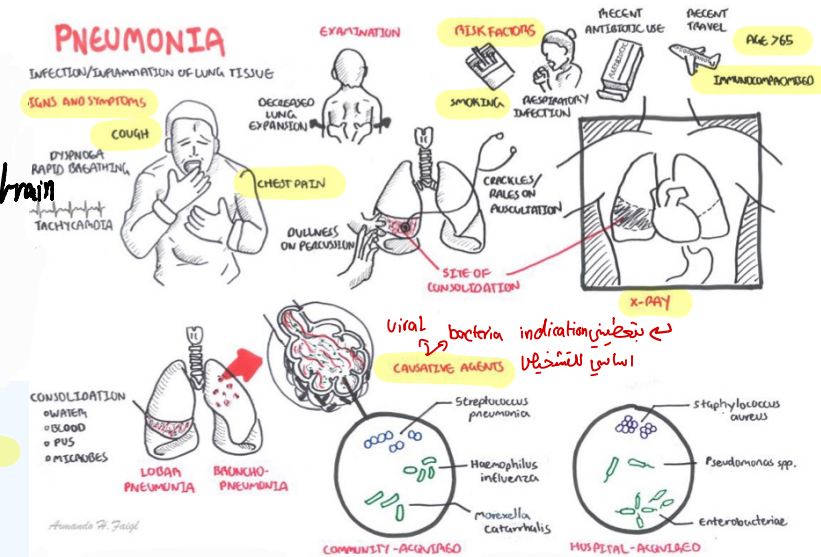 PNEUMONIA
INFECTION/INFLAMMATION OF LUNG TISSUE
SIGNS AND SYMPTOMS
COUGH
DYSPNOEA
RAPID BREATHING
brain
TACHYCARDIA
CHEST PAIN
EXAMINATION
DECREASED
LUNG
EXPANSION
DULLNESS
ON PERCUSSION
CRACKLES/
RALES ON
AUSCULTATION
SITE OF
CONSOLIDATION
RISK FACTORS
SMOKING
RESPIRATORY
INFECTION
RECENT
ANTIBIOTIC USE
ANTIBIOTIC
RECENT
TRAVEL
AGE >65
IMMUNOCOMPROMISED
X-RAY
viral
bacteria indication
اساسي للتشخيص
CAUSATIVE AGENTS
CONSOLIDATION
WATER
BLOOD
PUS
MICROBES
LOBAR
PNEUMONIA
BRONCHO-
PNEUMONIA
Streptococcus
pneumonia
Haemophilus
influenza
Morexella
catarrhalis
COMMUNITY-ACQUIRED
Staphylococcus
aureus
Pseudomonas spp.
Enterobacteriae
HOSPITAL-ACQUIRED
Armando H. Faigl